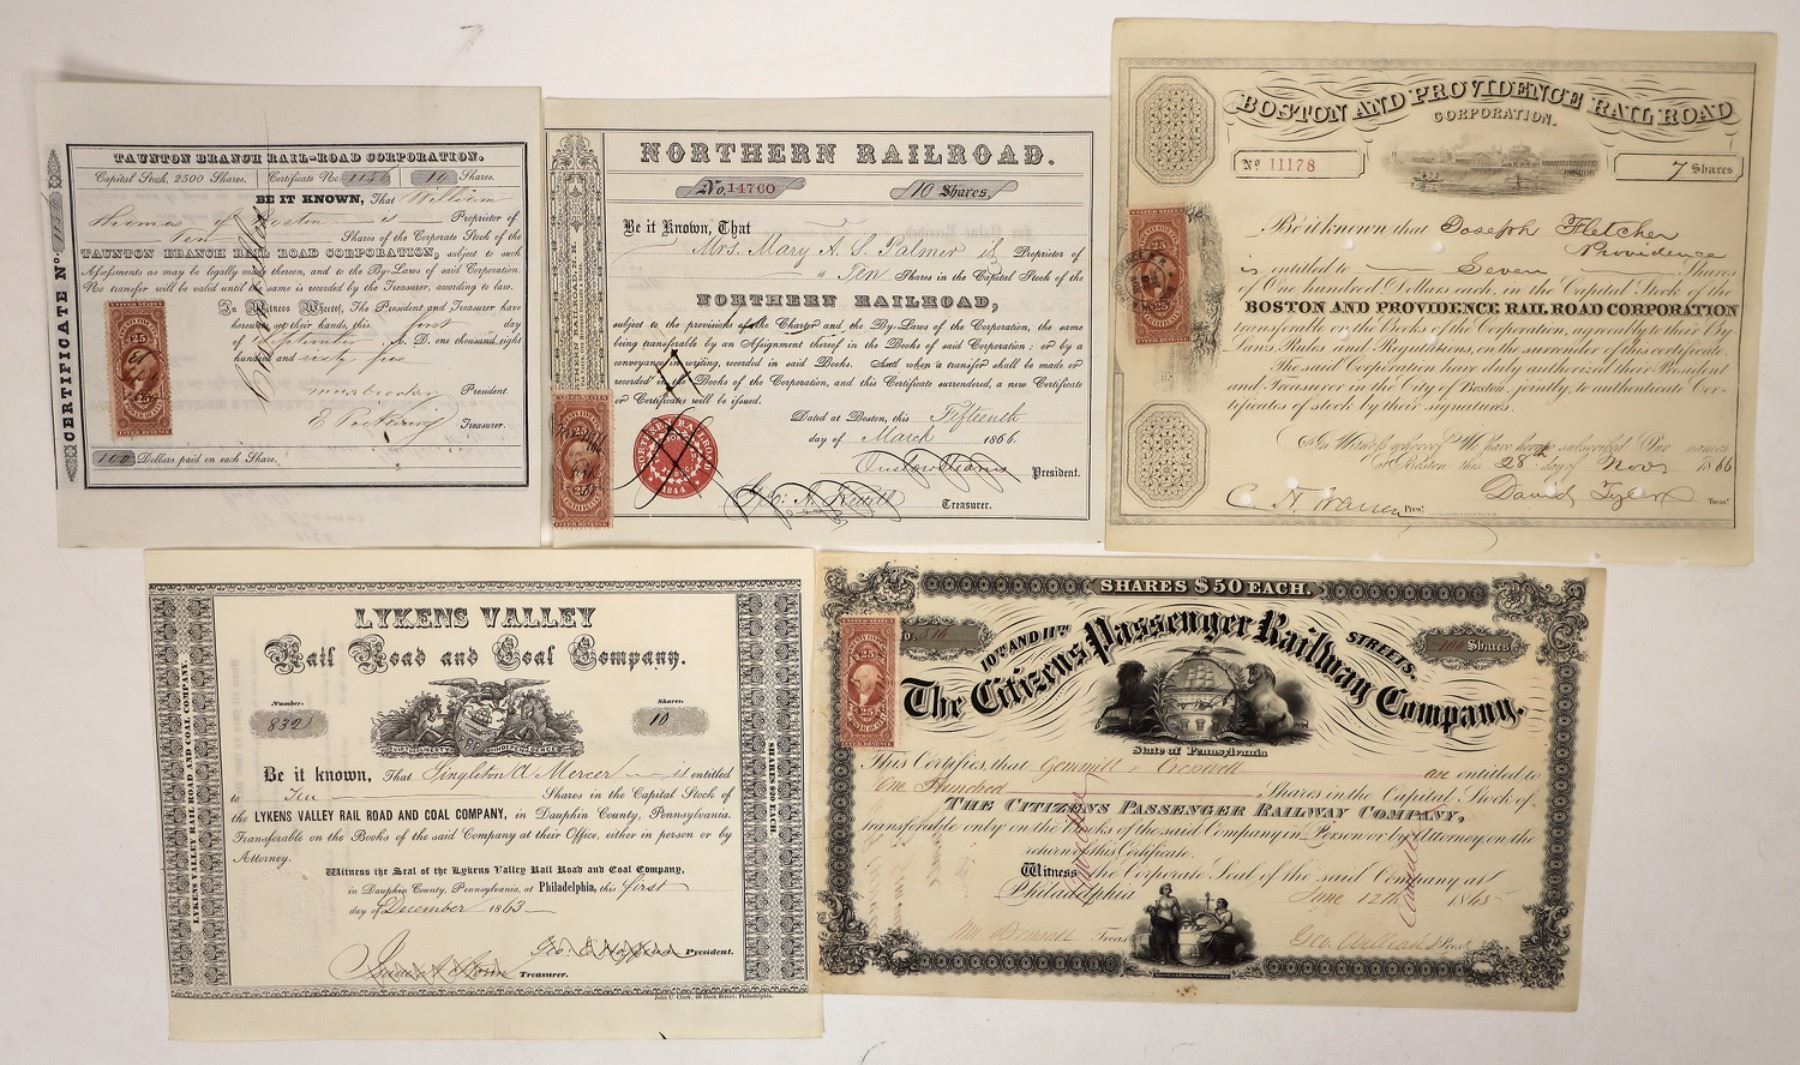 TAUNTON BRANCH RAIL-ROAD CORPORATION.
Capital Stock, 2500 Shares. Certificate No. 1156 10 Shares.
BE IT KNOWN, That William
Thomas of Boston is Proprietor of
Ten Shares of the Corporate Stock of the
TAUNTON BRANCH RAIL ROAD CORPORATION, subject to such
Assessments as may be legally made thereon, and to the By-Laws of said Corporation.
No transfer will be valid until the same is recorded by the Treasurer, according to law.
In Witness Whereof, The President and Treasurer have
hereunto set their hands, this first day
of September A. D. one thousand eight
hundred and sixty five
President.
Treasurer.
100 Dollars paid on each Share.
CERTIFICATE No.
25
INTER REVENUE
NORTHERN RAILROAD.
No. 14760 10 Shares.
Be it Known, That
Mrs. Mary A. S. Palmer is Proprietor of
" Ten Shares in the Capital Stock of the
NORTHERN RAILROAD,
subject to the provisions of the Charter and the By-Laws of the Corporation, the same
being transferable by an Assignment thereof in the Books of said Corporation; or by a
conveyance in writing, recorded in said Books. And when a transfer shall be made or
recorded in the Books of the Corporation, and this Certificate surrendered, a new Certificate
or Certificates will be issued.
Dated at Boston, this Fifteenth
day of March 1866.
President.
Treasurer.
NORTHERN RAILROAD
1844
BOSTON AND PROVIDENCE RAIL ROAD
CORPORATION.
No 11178 7 Shares
Be it known that Joseph Fletcher
Providence
is entitled to Seven Shares
of One hundred Dollars each, in the Capital Stock of the
BOSTON AND PROVIDENCE RAIL ROAD CORPORATION
transferable on the Books of the Corporation, agreeably to their By-
Laws, Rules and Regulations, on the surrender of this certificate.
The said Corporation have duly authorized their President
and Treasurer in the City of Boston, jointly, to authenticate Cer-
tificates of stock by their signatures.
In Witness whereof We have hereto subscribed Our names
at Boston this 28 day of Nov 1866
C. H. Warren Pres't
David Tyler Treas'r
LYKENS VALLEY
Rail Road and Coal Company.
Number. Shares
10
VIRTUE LIBERTY AND INDEPENDENCE
Be it known, That Singleton A Mercer is entitled
to Ten Shares in the Capital Stock of
the LYKENS VALLEY RAIL ROAD AND COAL COMPANY, in Dauphin County, Pennsylvania.
Transferable on the Books of the said Company at their Office, either in person or by
Attorney.
Witness the Seal of the Lykens Valley Rail Road and Coal Company,
in Dauphin County, Pennsylvania, at Philadelphia, this first
day of December 1863
President.
Treasurer.
LYKENS VALLEY RAIL ROAD AND COAL COMPANY.
SHARES $20 EACH.
John C. Clark, 60 Dock Street, Philadelphia.
SHARES $50 EACH.
10TH AND 11TH STREETS.
The Citizens Passenger Railway Company.
100 Shares
State of Pennsylvania
This Certifies, that Gemmill & Creswell are entitled to
One Hundred Shares in the Capital Stock of
THE CITIZENS PASSENGER RAILWAY COMPANY,
transferable only on the Books of the said Company in Person or by Attorney on the
return of this Certificate.
Witness the Corporate Seal of the said Company at
Philadelphia June 12th 1865
Treas.
Pres't